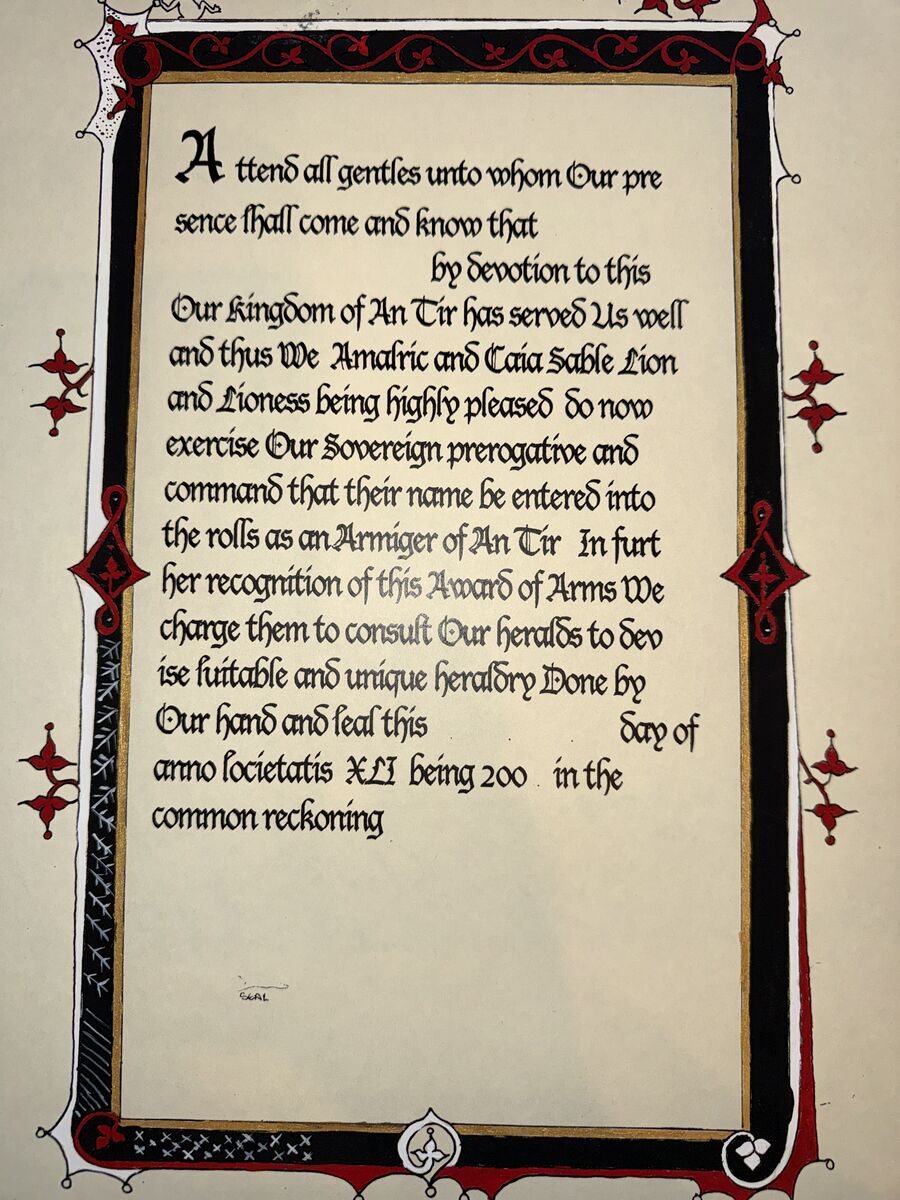 Attend all gentles unto whom Our pre
sence shall come and know that
by devotion to this
Our Kingdom of An Tir has served Us well
and thus We Amalric and Caia Sable Lion
and Lioness being highly pleased do now
exercise Our Sovereign prerogative and
command that their name be entered into
the rolls as an Armiger of An Tir In furt
her recognition of this Award of Arms We
charge them to consult Our heralds to dev
ise suitable and unique heraldry Done by
Our hand and seal this day of
anno societatis XLI being 200 in the
common reckoning
SEAL